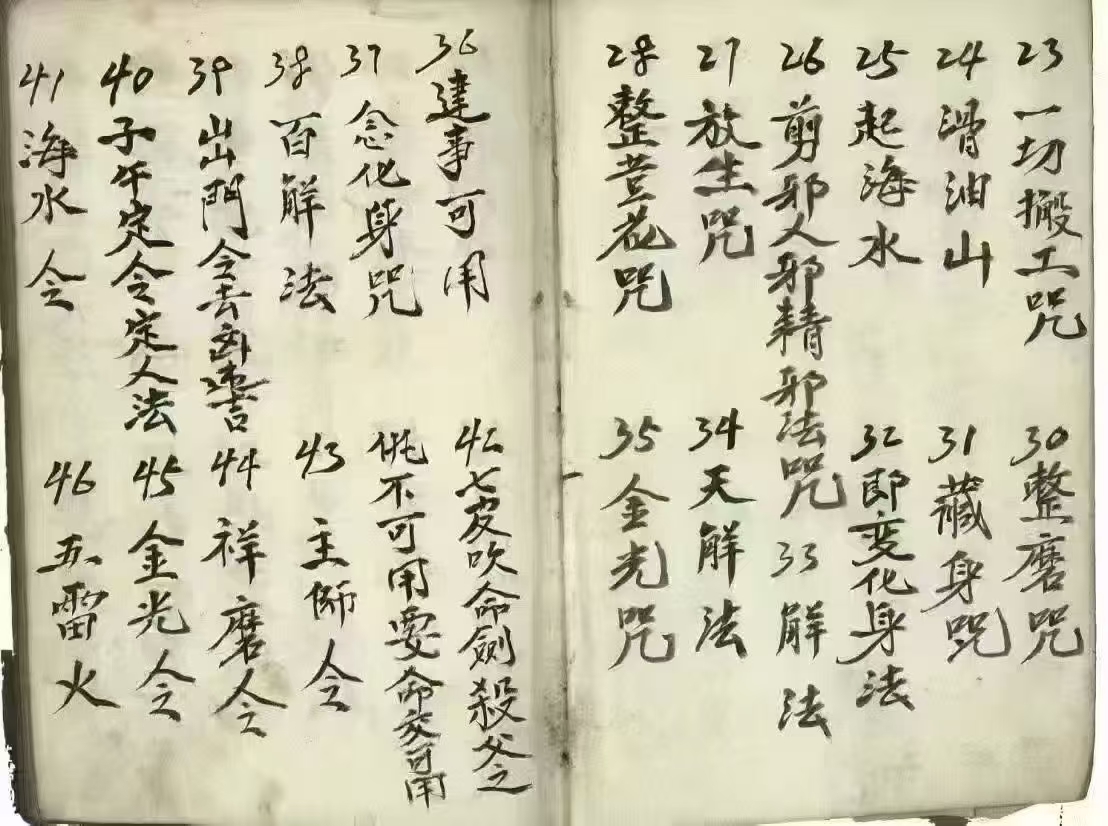 23 一切搬工咒
24 滑油山
25 起海水
26 剪邪人邪精邪法咒
27 放生咒
28 整荳花咒
30 整磨咒
31 藏身咒
32 即变化身法
33 解法
34 天解法
35 金光咒
36 建事可用
37 念化身咒
38 百解法
39 出門令去凶
40 子午定令定人法
41 海水令
42 七 吹命劍殺父之
仳不可用要命交可用
43 主師令
44 祥磨令
45 金光令
46 五雷火